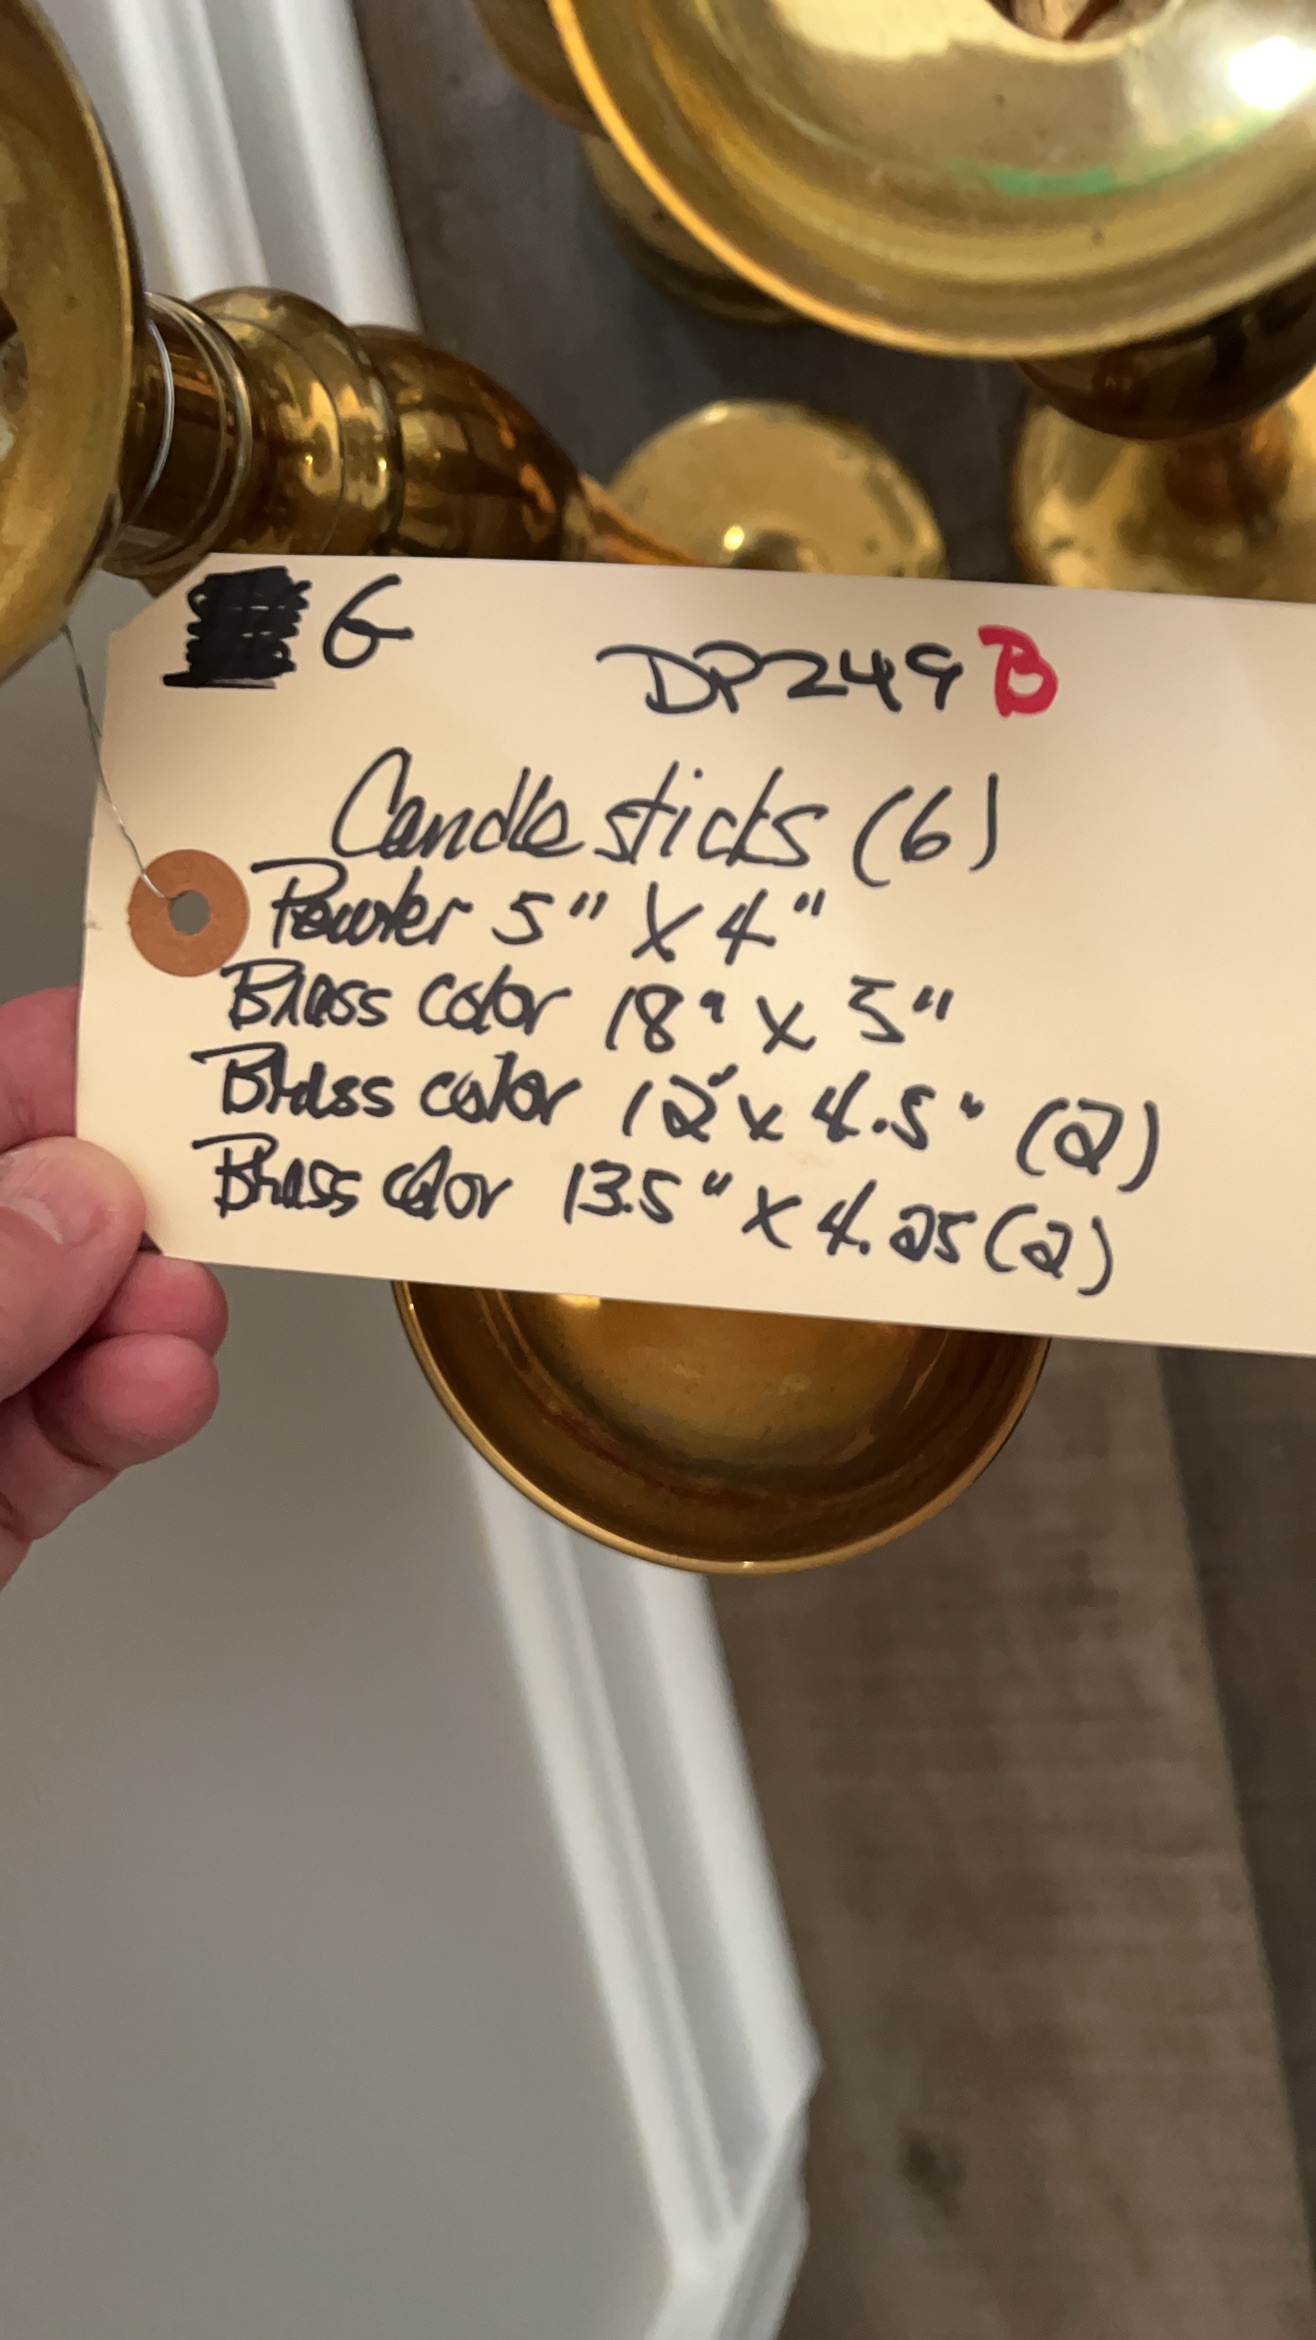 G
DP249B
Candlesticks (6)
Pewter 5" X 4"
Brass color 18" x 5"
Brass color 12" x 4.5" (2)
Brass color 13.5" x 4.25 (2)